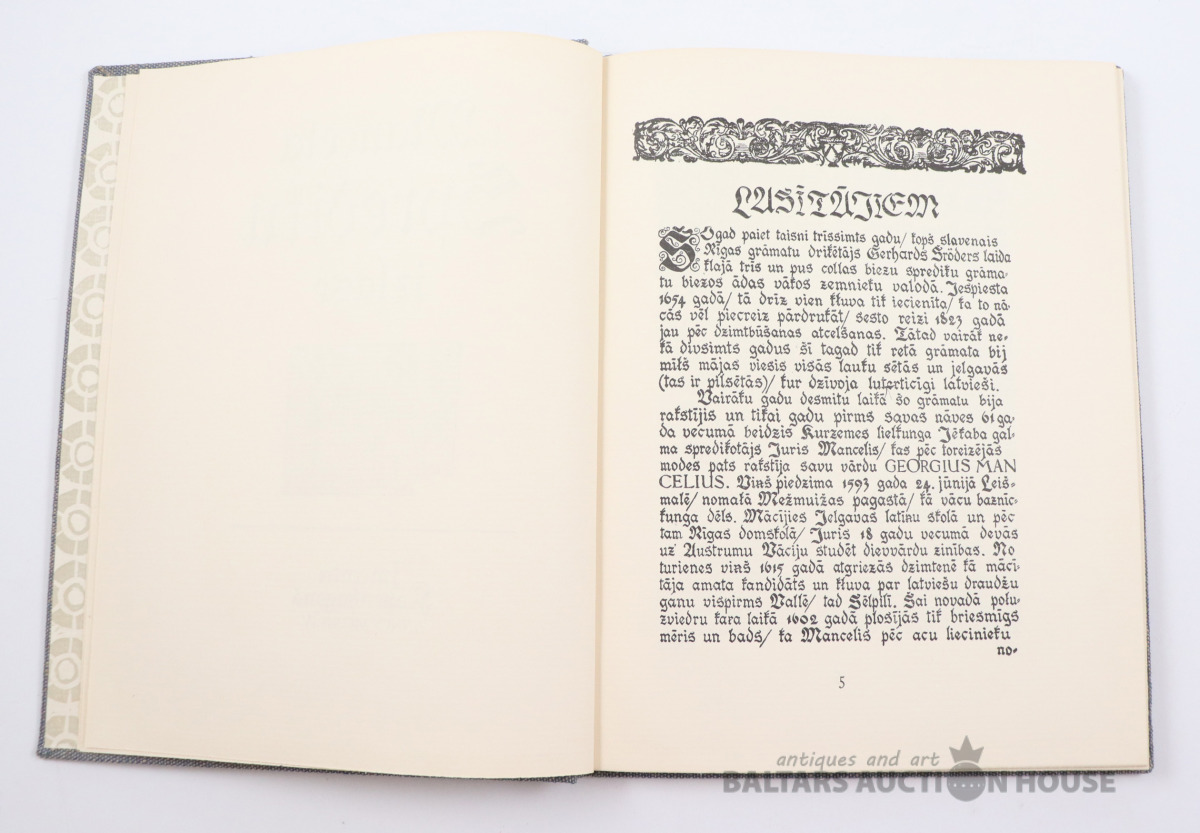 LASĪTĀJIEM
Šogad paiet taisni trīssimts gadu/ kopš slavenais
Rīgas grāmatu driķētājs Gerhards Šröders laida
klajā trīs un pus collas biezu sprediķu grāma-
tu biezos ādas vākos zemnieku valodā. Iespiesta
1654 gadā/ tā drīz vien kļuva tik iecienīta/ ka to nā-
cās vēl piecreiz pārdrukāt/ sesto reizi 1823 gadā
jau pēc dzimtbūšanas atcelšanas. Tātad vairāk ne-
kā divsimts gadus šī tagad tik retā grāmata bij
mīļš mājas viesis visās lauku sētās un jelgavās
(tas ir pilsētās)/ kur dzīvoja luterticīgi latvieši.
Vairāku gadu desmitu laikā šo grāmatu bija
rakstījis un tikai gadu pirms savas nāves 61 ga-
da vecumā beidzis Kurzemes lielkunga Jēkaba gal-
ma sprediķotājs Juris Mancelis/ kas pēc toreizējās
modes pats rakstīja savu vārdu GEORGIUS MAN
CELIUS. Viņš piedzima 1593 gada 24. jūnijā Leiš-
malē/ nomaļā Mežmuižas pagastā/ kā vācu baznīc-
kunga dēls. Mācījies Jelgavas latīņu skolā un pēc
tam Rīgas domskolā/ Juris 18 gadu vecumā devās
uz Austrumu Vāciju studēt dievvārdu zinības. No
turienes viņš 1615 gadā atgriezās dzimtenē kā mācī-
tāja amata kandidāts un kļuva par latviešu draudžu
ganu vispirms Vallē/ tad Sēlpilī. Šai novadā poļu-
zviedru kara laikā 1602 gadā plosījās tik briesmīgs
mēris un bads/ ka Mancelis pēc acu liecinieku
no-
5
antiques and art
BALTARS AUCTION HOUSE